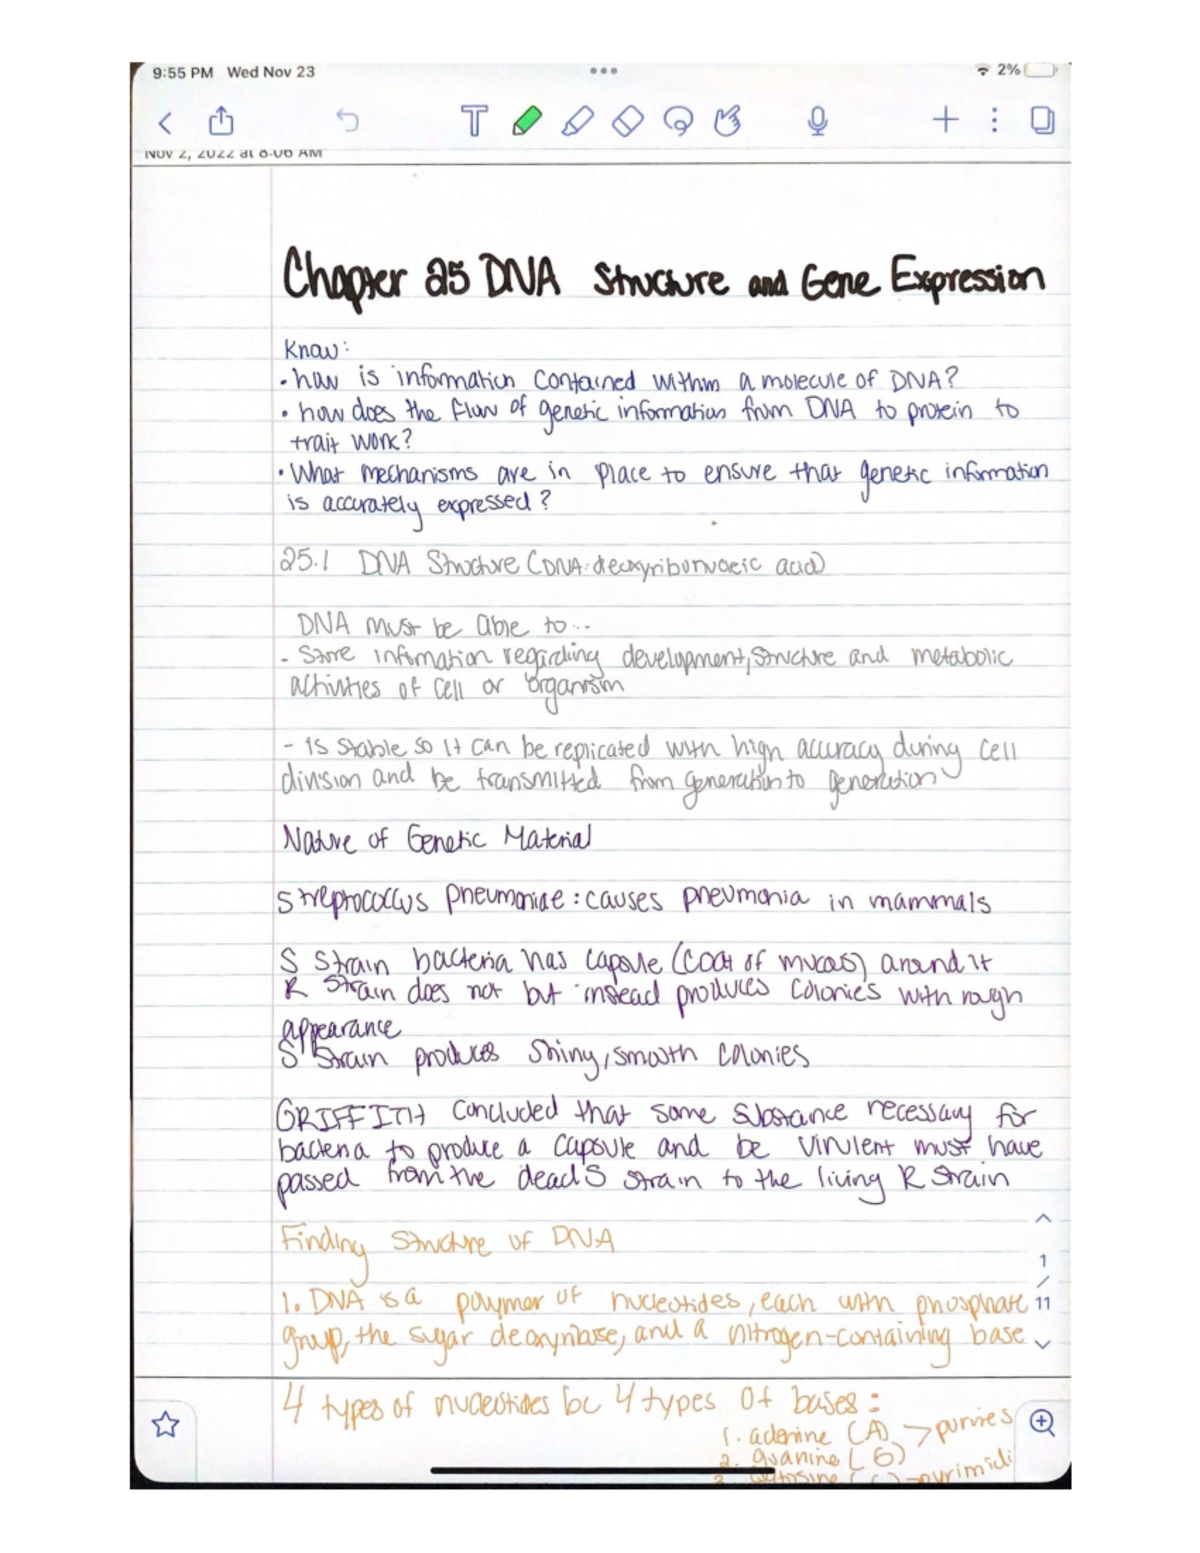 9:55 PM Wed Nov 23
2%
Nov 2, 2022 at 8:06 AM
Chapter 25 DNA Structure and Gene Expression
Know:
• how is information contained within a molecule of DNA?
• how does the flow of genetic information from DNA to protein to
trait work?
• What mechanisms are in place to ensure that genetic information
is accurately expressed?
25.1 DNA Structure (DNA: deoxyribonucleic acid)
DNA must be able to...
- Store information regarding development, structure and metabolic
activities of cell or organism
- is stable so it can be replicated with high accuracy during cell
division and be transmitted from generation to generation
Nature of Genetic Material
Streptococcus pneumoniae: causes pneumonia in mammals
S Strain bacteria has capsule (coat of mucus) around it
R Strain does not but instead produces colonies with rough
appearance
S Strain produces shiny, smooth colonies
GRIFFITH concluded that some substance necessary for
bacteria to produce a capsule and be virulent must have
passed from the dead S strain to the living R strain
Finding Structure of DNA
1. DNA is a polymer of nucleotides, each with phosphate
group, the sugar deoxyribose, and a nitrogen-containing base
1
/
11
4 types of nucleotides bc 4 types of bases:
1. adenine (A) > purines
2. guanine (G)
3. cytosine (C) -pyrimidi